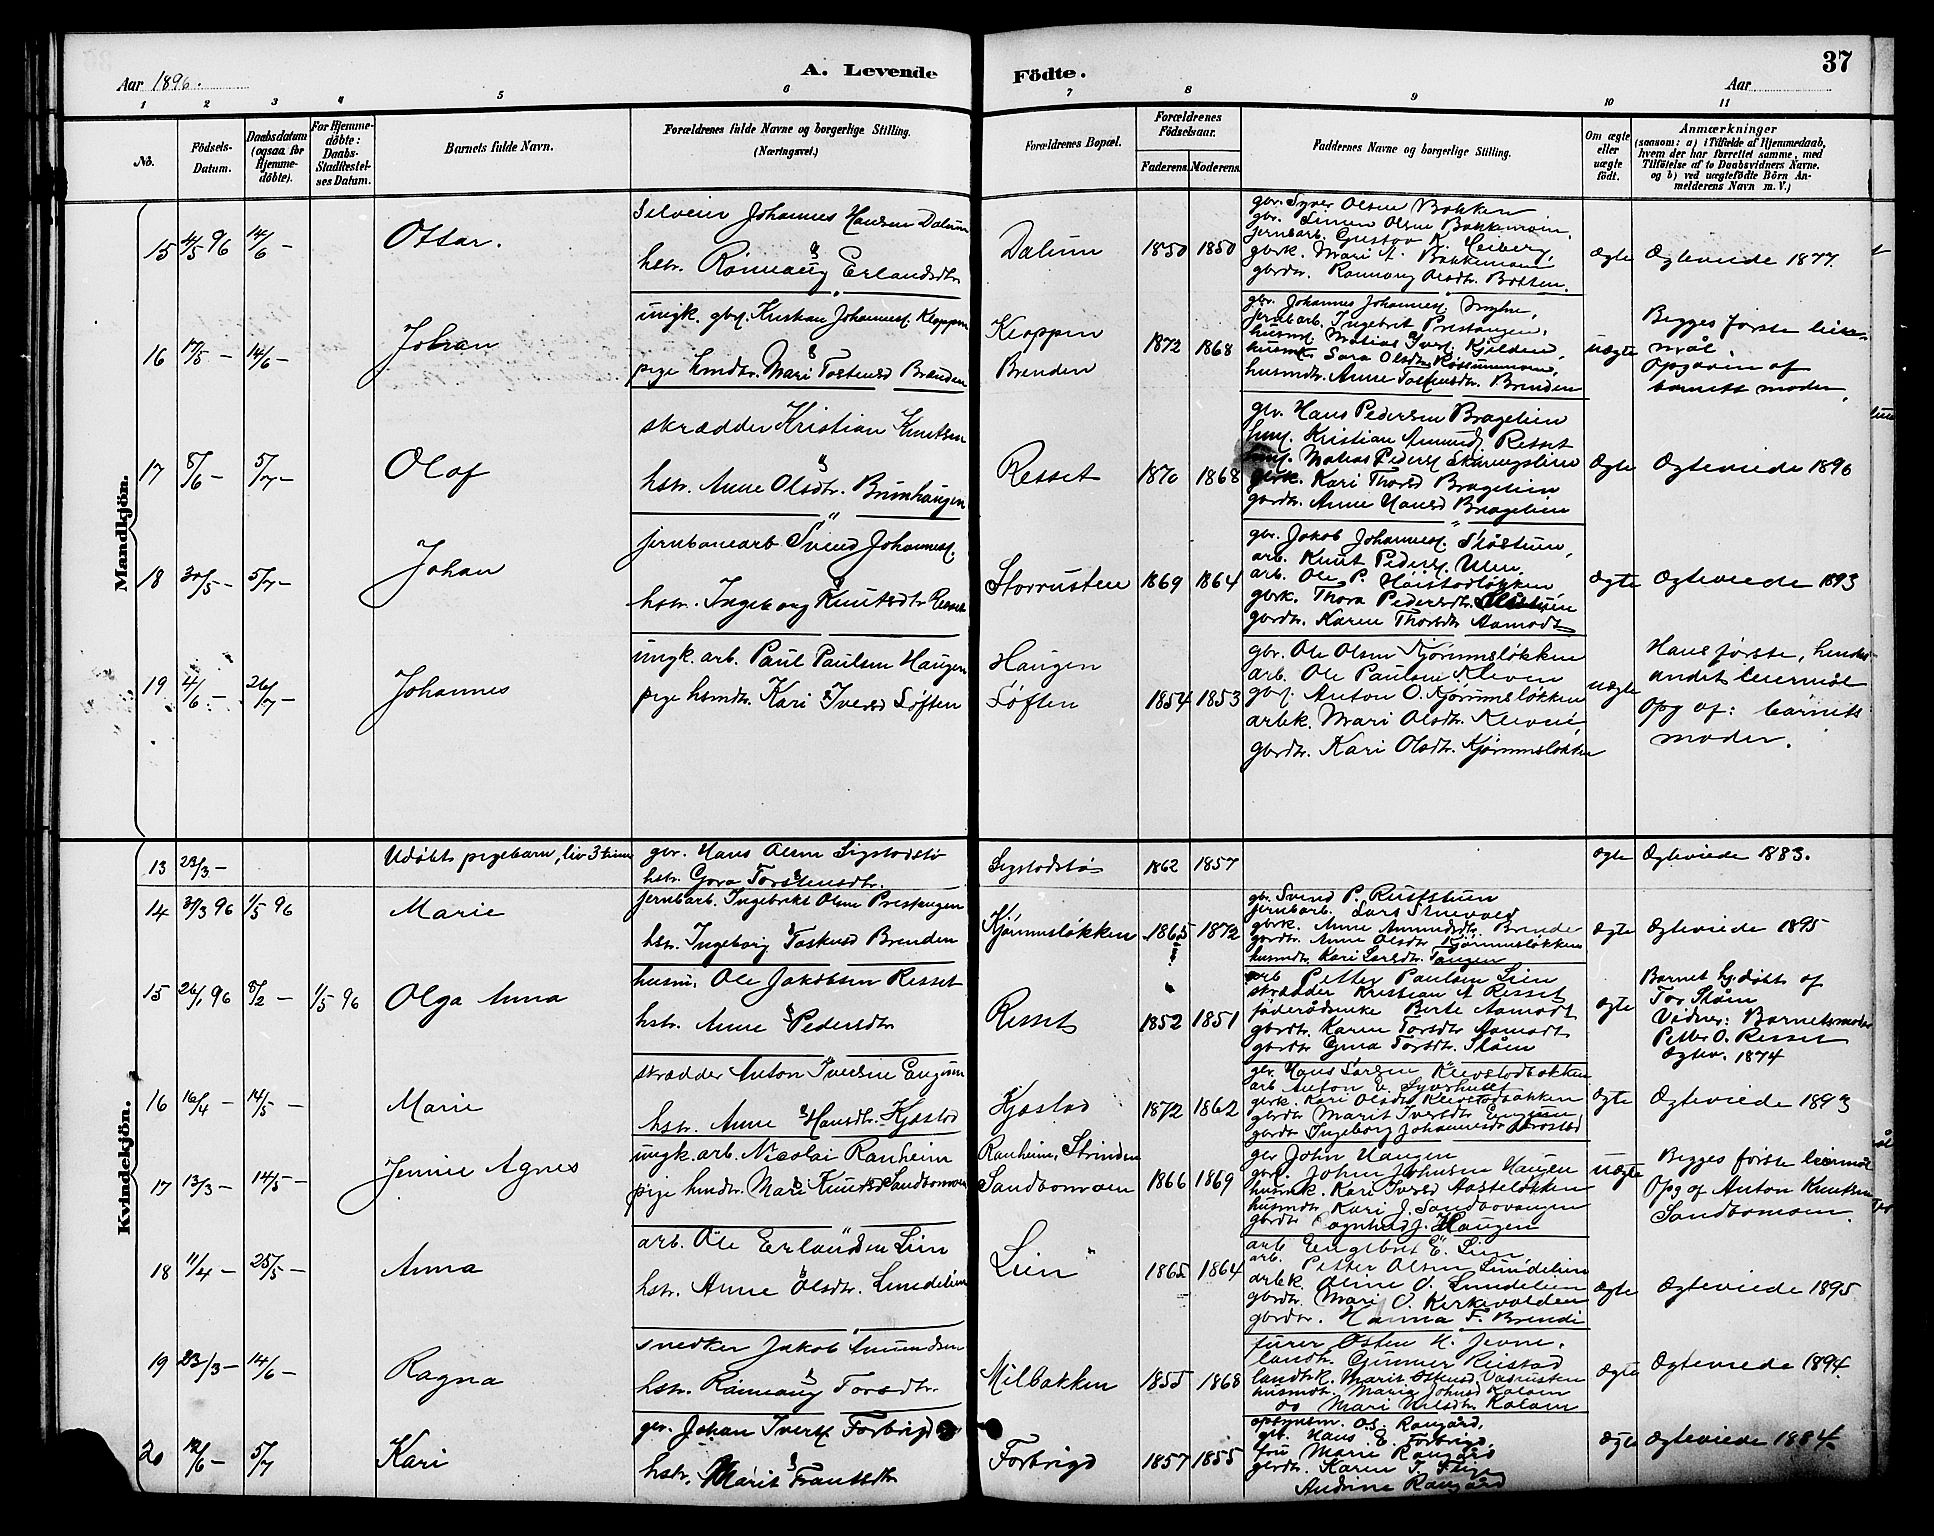 37
Aar 1896.
A. Levende Födte.
Aar
1 2 3 4 5 6 7 8 9 10 11
No.
Födsels-Datum.
Daabsdatum (ogsaa for Hjemme-döbte).
For Hjemme-döbte: Daabs-Stadfæstel-ses Datum.
Barnets fulde Navn.
Forældrenes fulde Navne og borgerlige Stilling. (Næringsvei.)
Forældrenes Bopæl.
Forældrenes Födselsaar.
Faderens. Moderens.
Faddernes Navne og borgerlige Stilling.
Om ægte eller uægte födt.
Anmærkninger
(saasom: a) i Tilfælde af Hjemmedaab, hvem der har forrettet samme, med Tilföielse af to Daabsvidners Navne. og b) ved uægtefödte Börn An-melderens Navn m. V.)
Mandkjön.
15 4/5 96 14/6 –
Ottar.
Selveier Johannes Hansen Dalum
hstr. Rönnaug Erlandsdtr
Dalum 1850 1850
gbr. Syver Olsen Bakken
gbr. Simen Olsen Bakkemoin,
jernbarb. Gustav K. Seiberg,
gbrk. Mari A. Bakkemoin
gbrdtr. Rannaug Olsdtr. Botten.
Ægte Ægteviede 1877.
16 17/5 – 14/6 –
Johan
ungk. gbrs. Kristian Johanness. Kloppen
pige hmdtr. Mari Tostensd Brænden
Kloppen
Brenden
1872 1868
gbr. Johannes Johanness. Myhre,
jernbarb. Ingebrit Prestangen,
husm. Matias Ivers. Kjelden,
husmdtr. Anne Tostensdtr. Brenden
uægte
Begges første leier-
mål.
Opgaven af
barnets moder.
17 8/6 – 5/7 –
Olaf
skrædder Kristian Knutsen
hstr. Anne Olsdtr. Brunhaugen
Resset 1870 1868
gbr. Hans Pedersen Bragelien
husm. Kristian Amunds. Resset
gbrk. Kari Thorsd Bragelien
gbrdtr. Anne Hansd Bragelien
Ægte Ægteviede 1896
18 30/5 – 5/7 –
Johan
jernbanearb Svend Johanness.
hstr. Ingeborg Knutsdtr. Resset
Storrusten 1869 1864
gbr. Jakob Johanness. Sløstuen,
arb. Knut Peders. Ulen.
arb. Ole P. Høistadløkken
gbrk. Thora Pedersdtr.
gbrdtr. Karen Thorsdtr Aamodt
Ægte Ægteviede 1893
19 4/6 – 26/7 –
Johannes
ungk. arb. Paul Paulsen Haugen
pige hsmdtr. Kari Iversd Løften
Haugen
Løften
1854 1853
gbr. Ole Olsen Kjørumsløkken
arb. Ole Paulsen Kleven
gbrs. Anton O. Kjørumsløkken
arbk. Mari Olsdtr. Kleven
gbrdtr. Kari Olsdtr. Kjørumsløkken
uægte
Hans første, hendes
andet leiermål
Opg af: barnets
moder.
Kvindekjön.
13 23/3 –
Udøbt pigebarn, liv 3 timer
gbr. Hans Olsen Sigstadstø
hstr. Gora Torstensdtr.
Sigstadstø 1862 1857
ægte Ægteviede 1883.
14 31/3 96 1/5 96
Marie
jernbarb. Ingebrikt Olsen Prestangen
hstr. Ingeborg Tostensd Brenden
Kjørumsløkken 1865 1872
gbr. Svend P. Ruststuen
jernbarb. Lars Stuevold
gbrk. Anne Amundsdtr. Brende
gbrdtr. Anne Olsdtr Kjørumsløkken
husmdtr. Kari Larsdtr. Tangen
ægte Ægteviede 1895
15 26/1 96 8/2 – 1/5 96
Olga Anna
husm. Ole Jakobsen Resset
hstr. Anne Pedersdtr
Resset 1852 1851
arb. Petter Paulsen Lien
skrædder Kristian A Resset
føderådsenke Berte Aamodt
gbrdtr. Karen Torsdtr. Aamodt
gbrdtr Gina Torsdtr. Slåen
ægte
Barnet hj.døbt af
Tor Slåen
Vidner: Barnetsmoder
Petter O. Resset
Ægtev. 1874
16 16/4 – 14/5 –
Marie
skrædder Anton Iversen Engum
hstr. Anne Hansdtr. Kjøstad
Kjøstad 1872 1862
arb Anton E. Syverhuset
gbrdtr Marit Iversdtr.
gbrdtr Ingeborg Johannesdr
ægte Ægteviede 1893
17 13/3 – 14/5 –
Jennie Agnes
ungk. arb. Nicolai Ranheim
pige hmdtr. Mari Knudsd Sandbomoen
Ranheim, Strinden
Sandbomoen
1866 1869
gbr John Haugen
gbrs. Johan Johnsen Haugen
husmk. Kari Iversd Aasteløkken
husmdtr. Kari J. Sandbovangen
gbrdtr Ragnhild J. Haugen
uægte
Begges første leiermål
Opg af Anton Knutsen
Sandbomoen.
18 11/4 – 25/5 –
Anna
arb. Ole Erlandsen Lien
hstr. Anne Olsdtr. Lundelien
Lien 1865 1864
arb Engebret E. Lien
arb. Petter Olsen Lundelien
arbk Oline O. Lundelien
gbrdtr. Mari O. Kirkevolden
gbrdtr. Hanna F. Brende
ægte Ægteviede 1895
19 23/3 – 14/6 –
Ragna
snedker Jakob Amundsen
hstr. Rønnaug Torsdtr.
Milbakken 1855 1868
furer Østen H. Jevne.
landh. Gunner Reistad
landhk. Marit Østensd. Vasrusten
husmdtr. Maria Johnsd Koloen
do Mari Nilsdtr Koloen
ægte Ægteviede 1894.
20 12/6 – 5/7
Kari
gbr. Johan Ivers Forbrigd
hstr. Marit Frantsdtr
Forbrigd 1857 1855
opsynsm. Os. Rangård,
gb. Hans E. Forbrigd
fru Marie Rangård
gbrdtr. Karen T.
Andrine Rangård
ægte Ægteviede 1884.